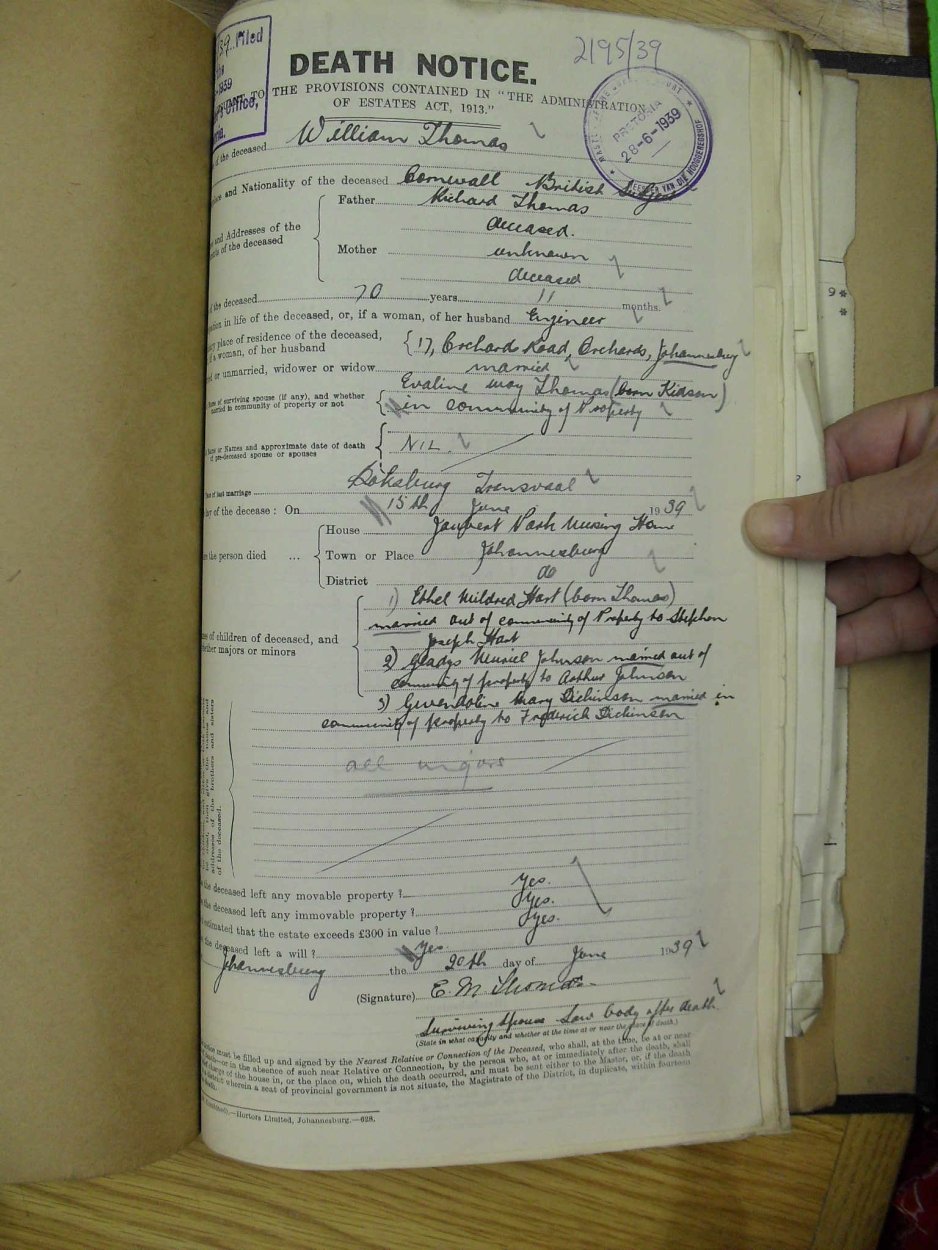 2195/39
Filed
1939
Office,
DEATH NOTICE.
TO THE PROVISIONS CONTAINED IN "THE ADMINISTRATION
OF ESTATES ACT, 1913."
PRETORIA
28-6-1939
MEESTER VAN DIE HOOGGEREGSHOF
of the deceased William Thomas
and Nationality of the deceased Cornwall British Subject
and Addresses of the
of the deceased
Father Richard Thomas
deceased.
Mother unknown
deceased
of the deceased 70 years 11 months.
in life of the deceased, or, if a woman, of her husband Engineer
place of residence of the deceased,
if a woman, of her husband
17, Orchard Road, Orchards, Johannesburg
or unmarried, widower or widow married
of surviving spouse (if any), and whether
married in community of property or not
Evaline May Thomas (born Kidson)
in community of Property
Name or Names and approximate date of death
of pre-deceased spouse or spouses
NIL.
of last marriage Boksburg Transvaal
of the decease: On 15th June 1939
the person died ...
House Joubert Park Nursing Home
Town or Place Johannesburg
District do
of children of deceased, and
whether majors or minors
1) Ethel Mildred Hart (born Thomas)
married out of community of Property to Stephen
Joseph Hart
2) Gladys Muriel Johnson married out of
community of property to Arthur Johnson
3) Gwendoline Mary Dickinson married in
community of property to Frederick Dickinson
all majors
addresses of the brothers and sisters
of the deceased.
the deceased left any movable property? Yes.
the deceased left any immovable property? Yes.
estimated that the estate exceeds £300 in value? Yes.
the deceased left a will? Yes.
Johannesburg the 20th day of June 1939
(Signature) E. M Thomas
Surviving Spouse Saw body after death
(State in what capacity and whether at the time at or near the place of death.)
must be filled up and signed by the Nearest Relative or Connection of the Deceased, who shall, at the time, be at or near
or in the absence of such near Relative or Connection, by the person who, at or immediately after the death, shall
charge of the house in, or the place on, which the death occurred, and must be sent either to the Master, or, if the death
district wherein a seat of provincial government is not situate, the Magistrate of the District, in duplicate, within fourteen
Hortors Limited, Johannesburg.—628.